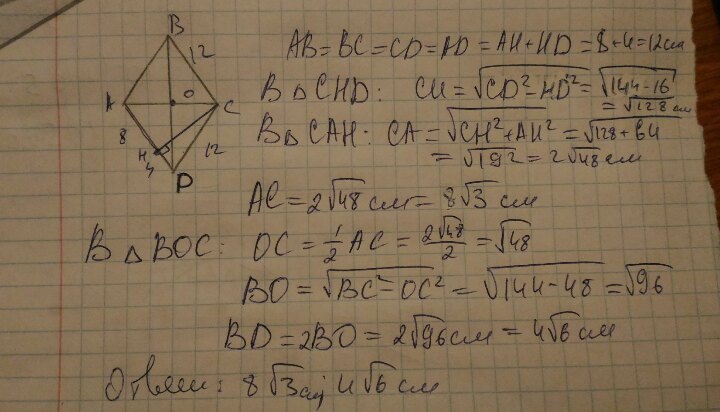 B
12
A
O
C
8
H
4
12
D
AB = BC = CD = AD = AH + HD = 8 + 4 = 12 см
В △ CHD: CH = √(CD² - HD²) = √(144 - 16)
= √128 см
В △ CAH: CA = √(CH² + AH²) = √(128 + 64)
= √192 = 2√48 см
AC = 2√48 см = 8√3 см
В △ BOC: OC = 1/2 AC = 2√48/2 = √48
BO = √(BC² - OC²) = √(144 - 48) = √96
BD = 2BO = 2√96 см = 4√6 см
Ответ: 8√3 см; 4√6 см